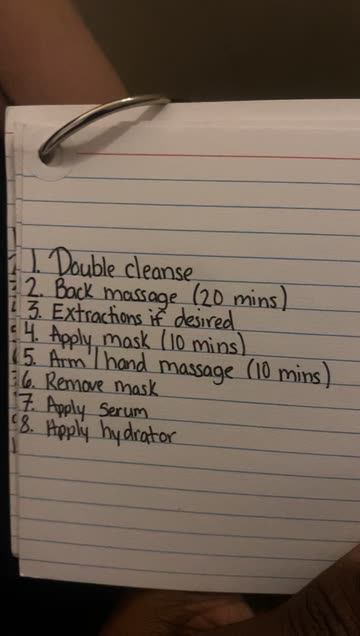 1. Double cleanse
2. Back massage (20 mins)
3. Extractions if desired
4. Apply mask (10 mins)
5. Arm / hand massage (10 mins)
6. Remove mask
7. Apply Serum
8. Apply hydrator